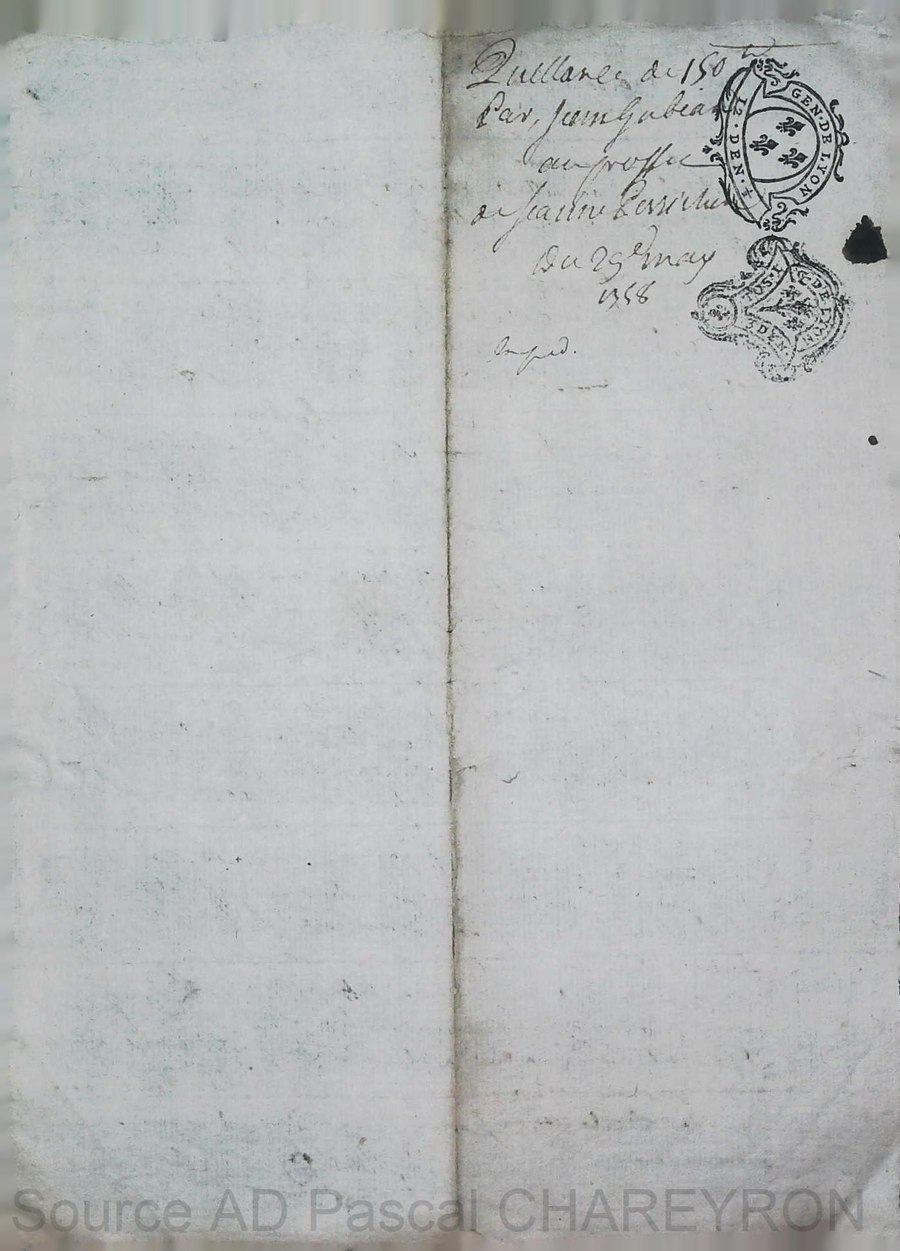 Quittance de 150 tt
Par, Jean Gubian
au proffit
de Jeanne
du 29e may
1758
GEN·DE LYON
12·DEN·F
G·DE LYON
Source AD Pascal CHAREYRON